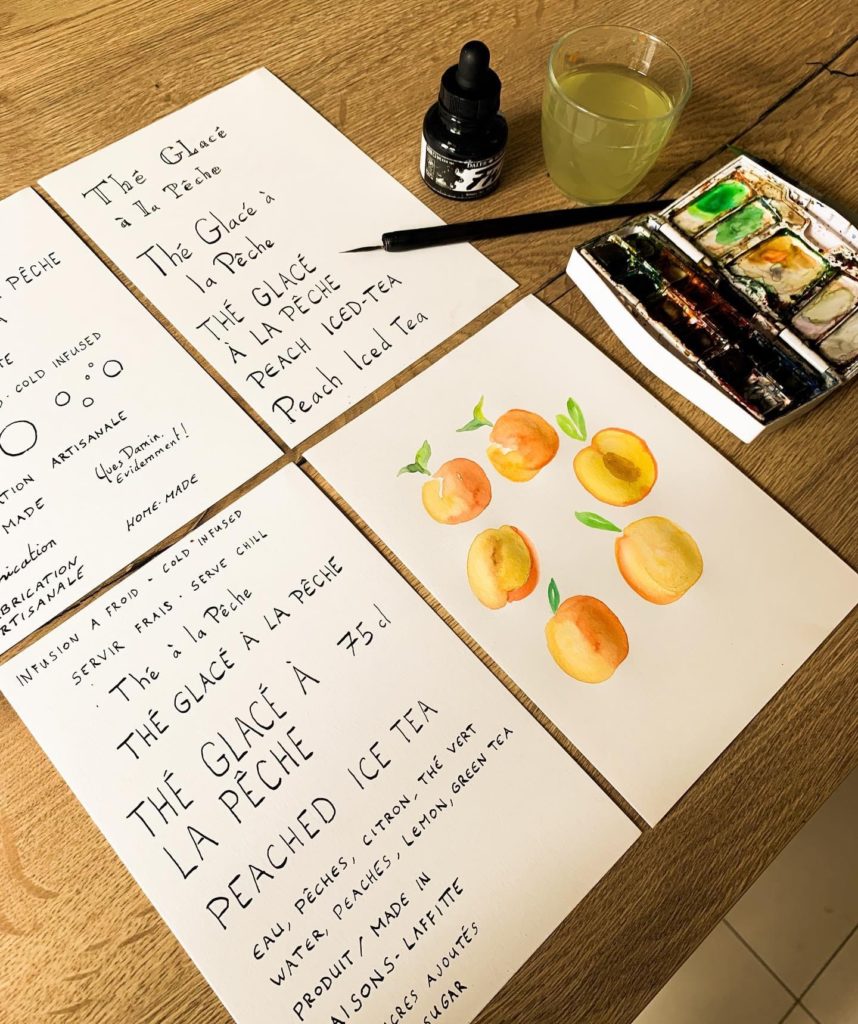 Thé Glacé
à la Pêche
Thé Glacé à
la Pêche
THÉ GLACÉ
À LA PÊCHE
PEACH ICED-TEA
Peach Iced Tea
PÊCHE
COLD INFUSED
ARTISANALE
MADE
Yves Damin.
Evidemment!
HOME-MADE
ARTISANALE
INFUSION A FROID - COLD INFUSED
SERVIR FRAIS. SERVE CHILL
Thé à la Pêche
THÉ GLACÉ À LA PÊCHE
THÉ GLACÉ À 75 cl
LA PÊCHE
PEACHED ICE TEA
EAU, PÊCHES, CITRON, THÉ VERT
WATER, PEACHES, LEMON, GREEN TEA
PRODUIT / MADE IN
AISONS-LAFFITTE
CRES AJOUTÉS
SUGAR